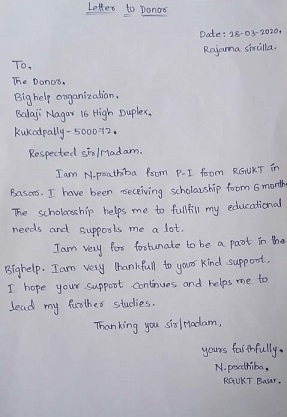 Letter to Donor
Date: 28-03-2020,
Rajanna siricilla.
To,
The Donor,
Bighelp organization,
Balaji Nagar 16 High Duplex,
Kukatpally - 500072.
Respected sir/Madam.
Iam N.prathiba from P-I from RGUKT in
Basar. I have been receiving scholarship from 6 month
The scholarship helps me to fullfill my educational
needs and supports me a lot.
Iam very for fortunate to be a part in the
Bighelp. Iam very thankfull to your kind support.
I hope your support continues and helps me to
lead my further studies.
Thanking you sir/Madam,
yours faithfully,
N.prathiba,
RGUKT Basar.